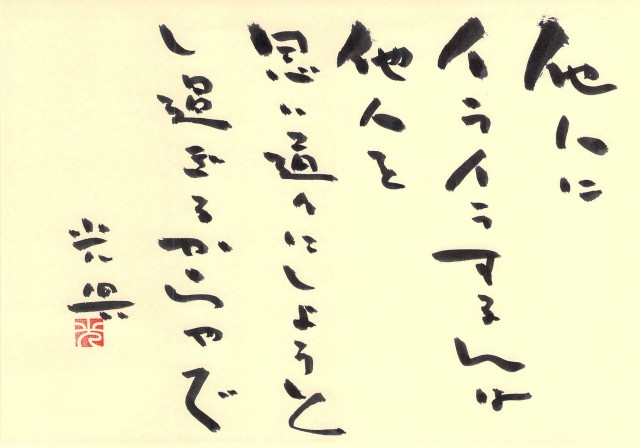 他人に
イライラするんは
他人を
思い通りにしようと
し過ぎるからやで